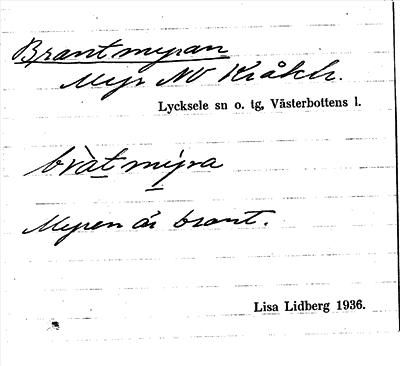 Brantmyran
Myr NV Kråkb.
Lycksele sn o. tg, Västerbottens l.
bràtmýra
Myren är brant.
Lisa Lidberg 1936.